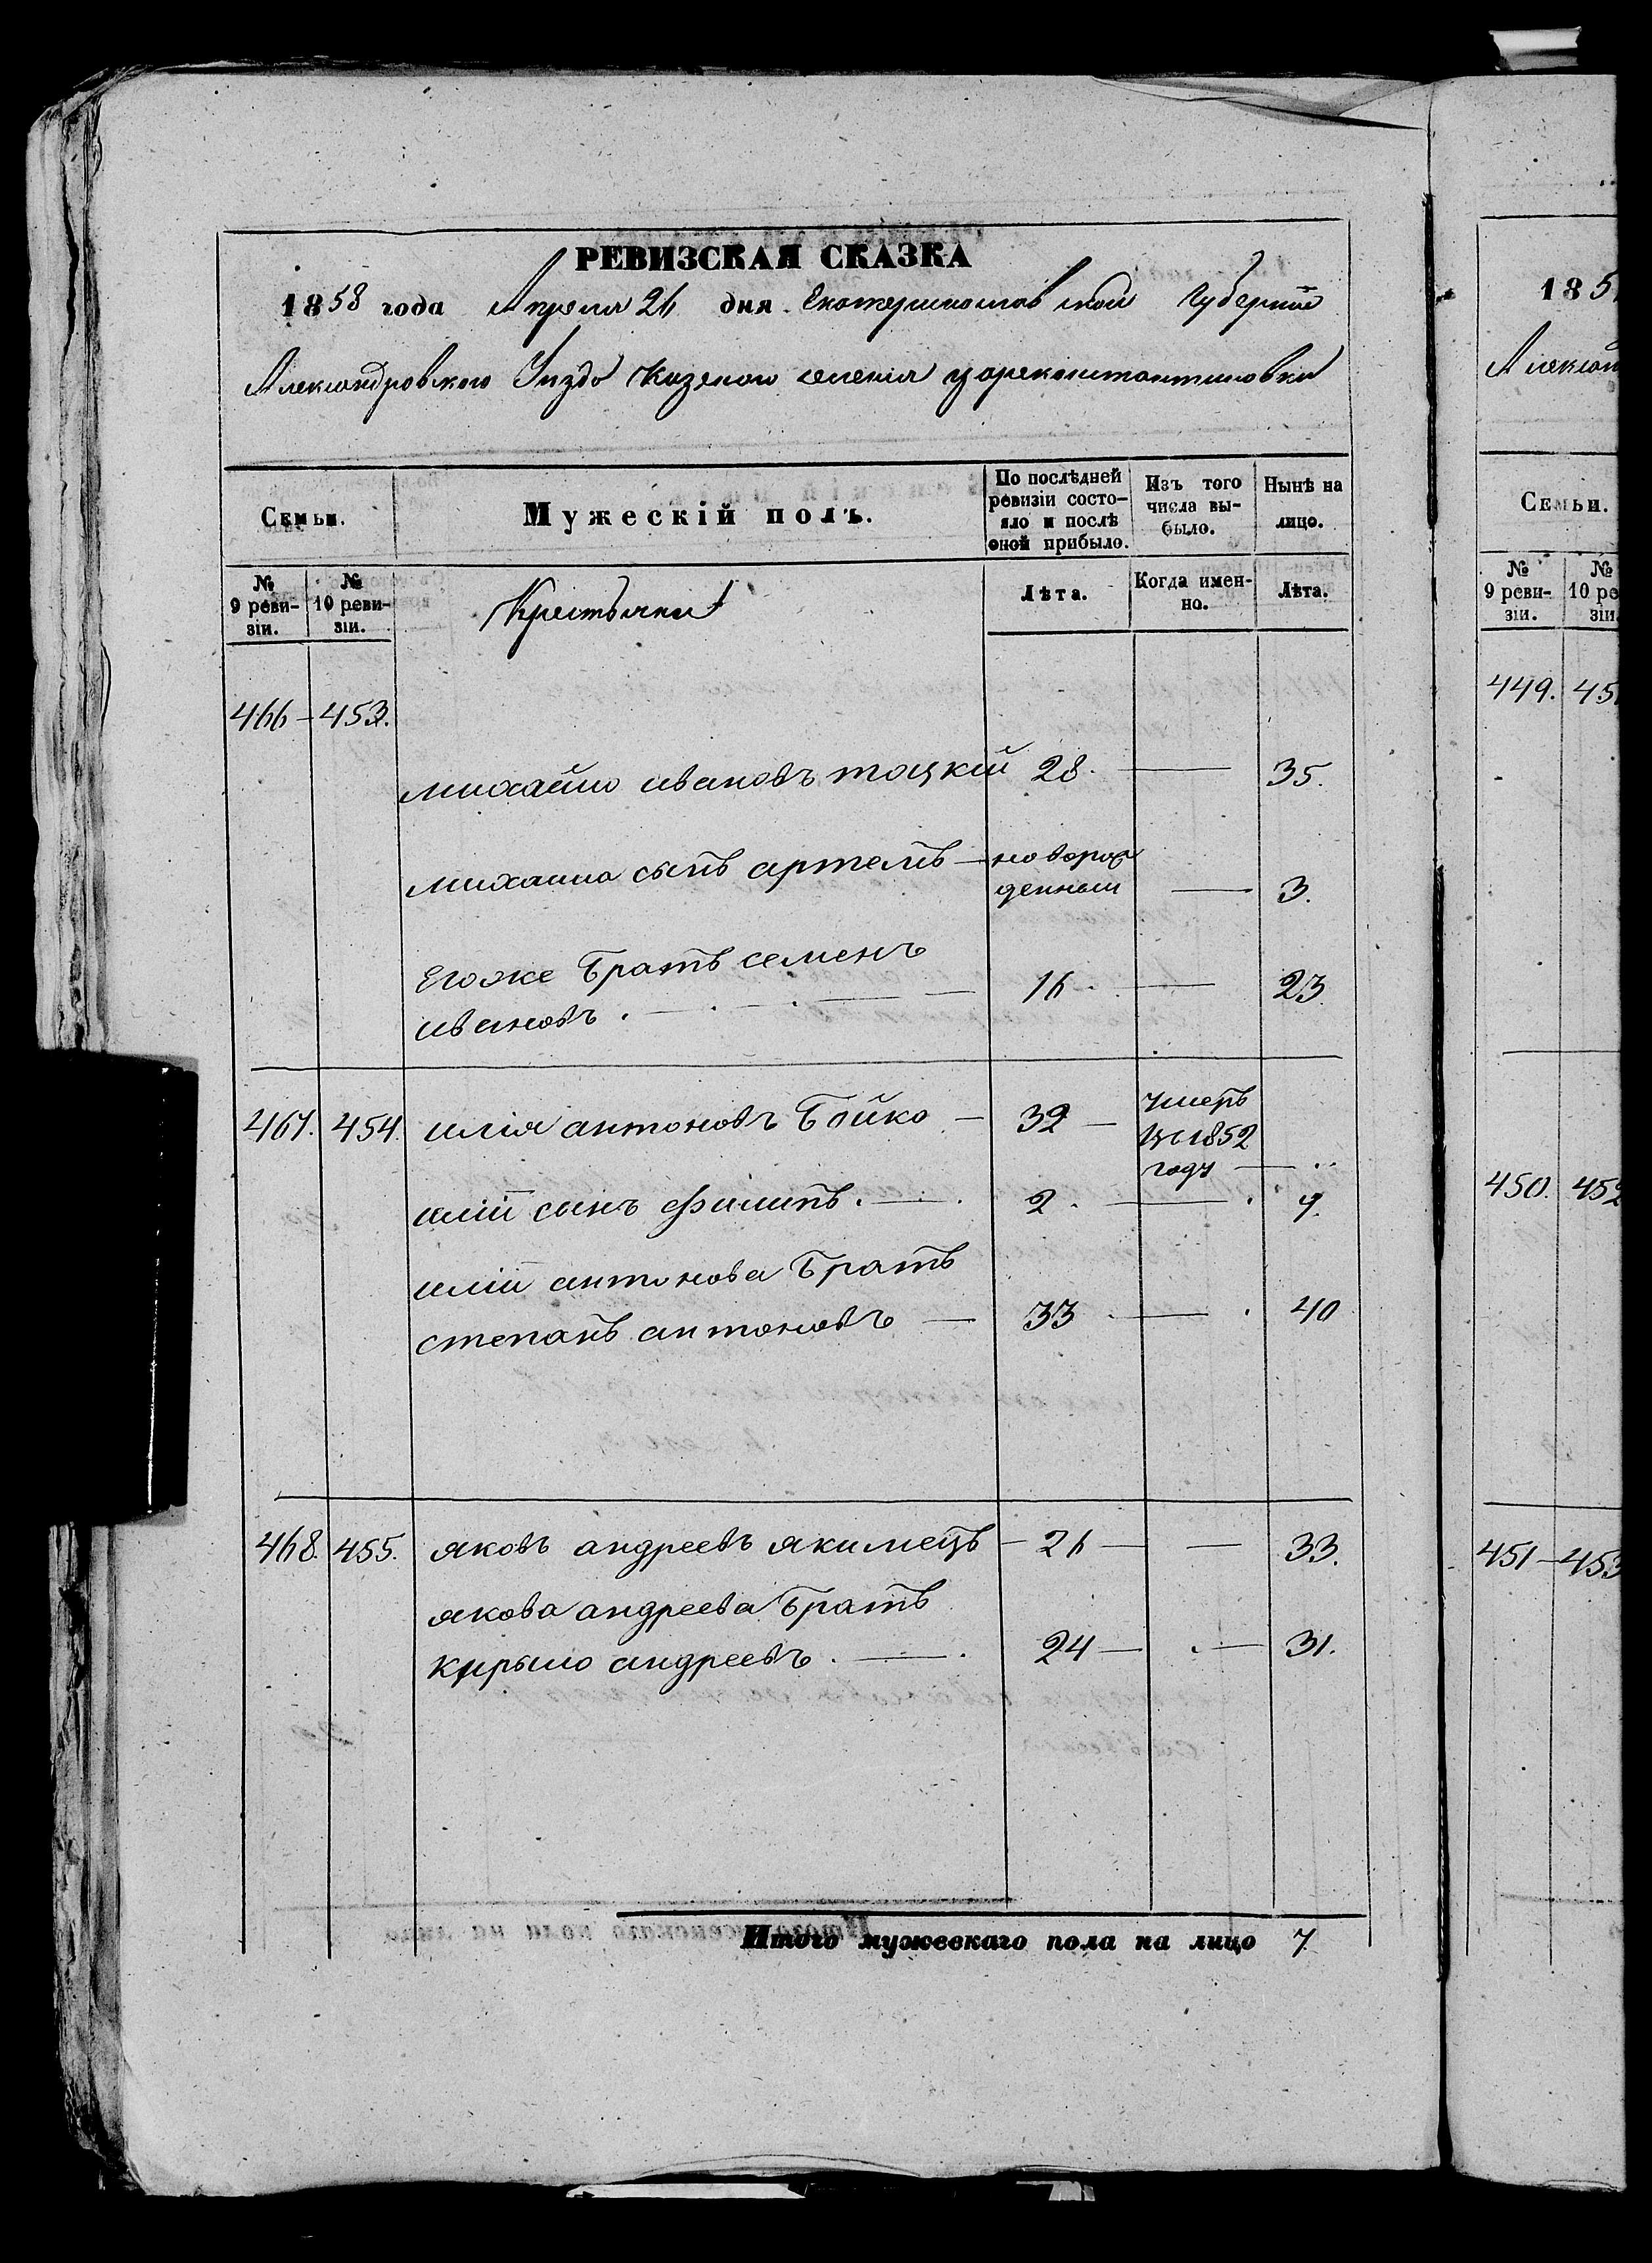 РЕВИЗСКАЯ СКАЗКА
1858 года Апреля 26 дня Екатеринославской Губернии
Александровского Уезда Казеного селения Цареконстантиновки
Семьи.
Мужескій полъ.
По послѣдней ревизіи состо-
яло и послѣ
оной прибыло.
Изъ того
числа вы-
было.
Нынѣ на
лицо.
№
9 реви-
зіи.
№
10 реви-
зіи.
Крестьяне
Лѣта.
Когда имен-
но.
Лѣта.
466 – 453.
михайло ивановъ тоцкій 28. — 35.
михаила сынъ артемъ — новорож
денный — 3.
Его же братъ семенъ
ивановъ. — 16. — 23.
467. 454. илія антоновъ Бойко — 32 — умеръ
въ 1852
году — ..
иліи сынъ филипъ. — 2. — 9.
иліи антонова братъ
степанъ антоновъ — 33. — 40
468. 455. яковъ андреевъ якимецъ — 26 — — 33.
якова андреева братъ
кирыло андреевъ. — 24 — — 31.
Итого мужескаго пола на лицо 7
185
Алексан
Семьи.
№
9 реви-
зіи.
№
10 ре
зіи.
449. 45
450. 452
451 – 453